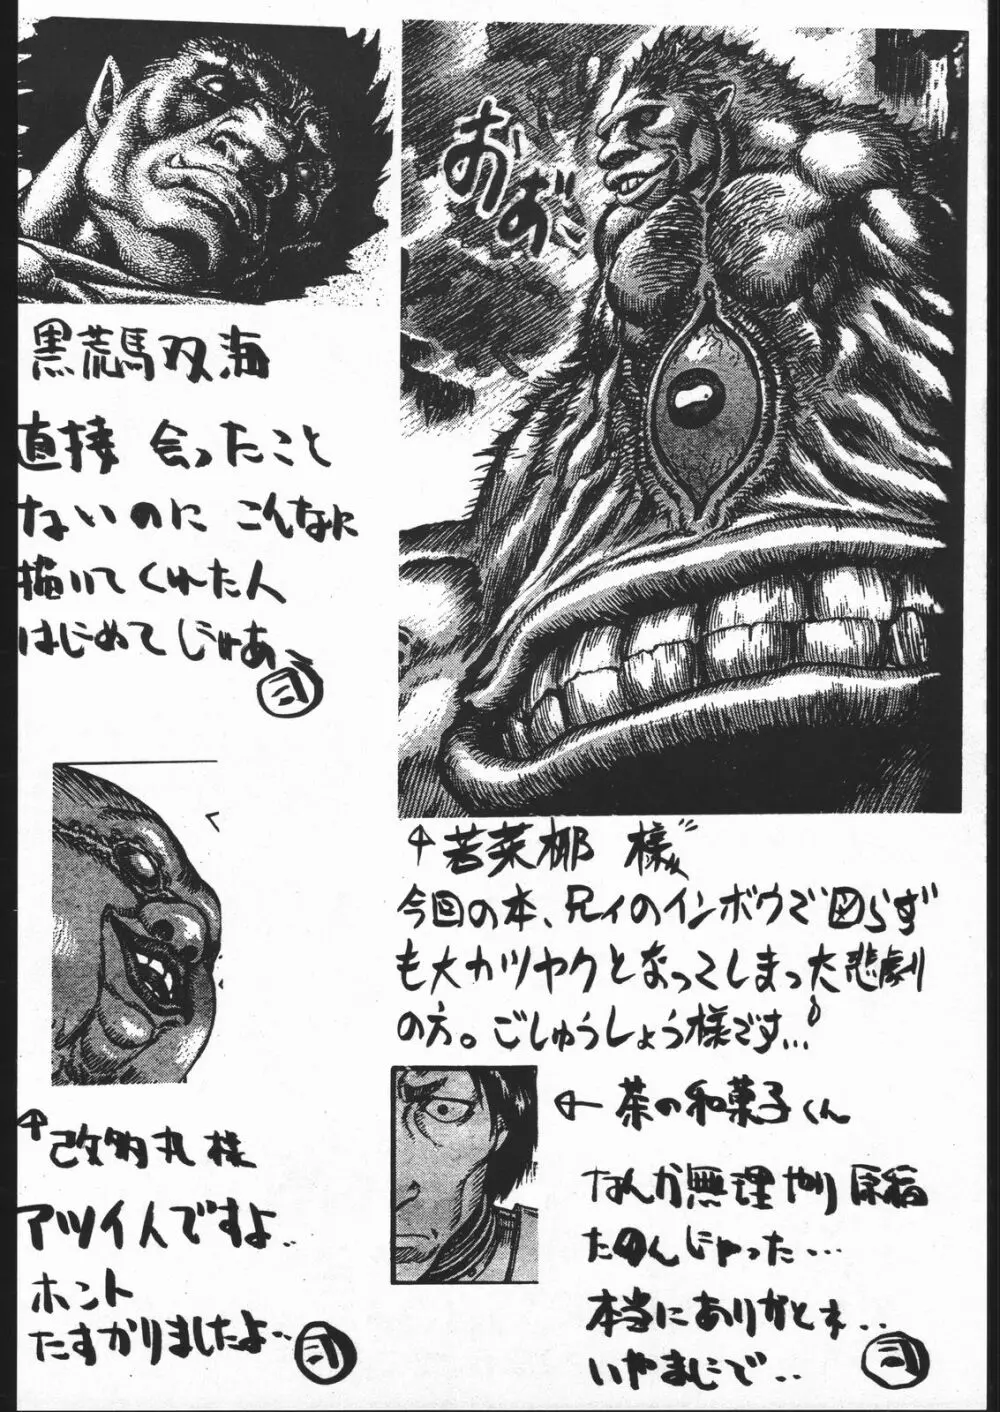 おおお
黒荒馬双海
直接 会ったこと
ないのに こんなに
描いてくれた人
はじめてじゃあ
弐
↑若菜梛 様
今回の本、兄ィのインボウで図らず
も大カツヤクとなってしまった悲劇
の方。ごしゅうしょう様です…
↑改多丸様
アツイ人ですよ..
ホント
たすかりましたよ..
弐
←茶の和菓子くん
なんか無理やり原稿
たのんじゃった…
本当にありがとネ..
いやまじで..
弐